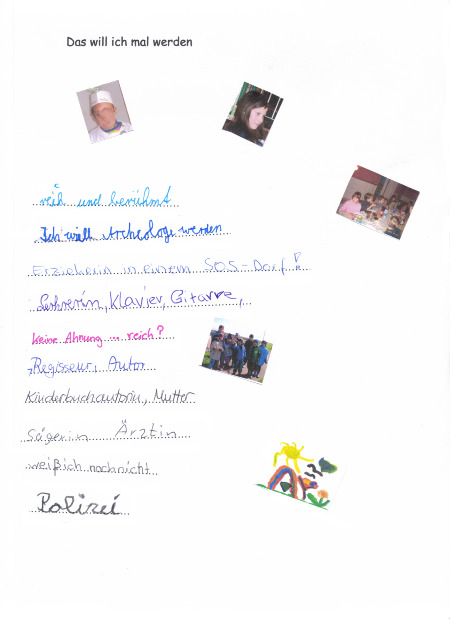 Das will ich mal werden
reich und berühmt
Ich will Archeologe werden
Erzieherin in einem SOS-Dorf!
Lehrerin, Klavier, Gitarre,
keine Ahnung ... reich?
Regisseur, Autor
Kinderbuchautorin, Mutter
Sägerin Ärztin
weiß ich noch nicht
Polizei